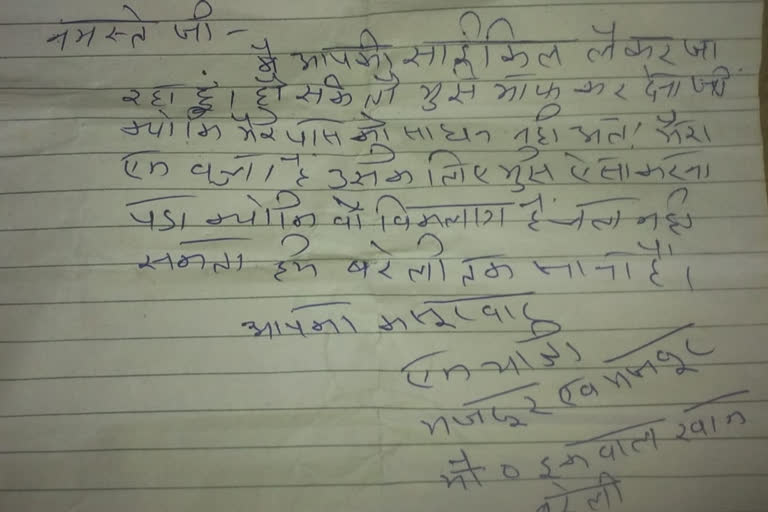 नमस्ते जी -
मै आपकी साईकिल लेकर जा
रहा हूँ। हो सके तो मुझे माफ कर देना जी
क्योकि मेरे पास को साधन नही अत। मेरा
एक बच्चा है उसके लिए मुझे ऐसा करना
पडा क्योकि वो विकलांग है चल नही
सकता हमे बरेली तक जाना है।
आपका कसूरवार
एक यात्री
मजदूर एवं मजबूर
मो० इकबाल खान
बरेली